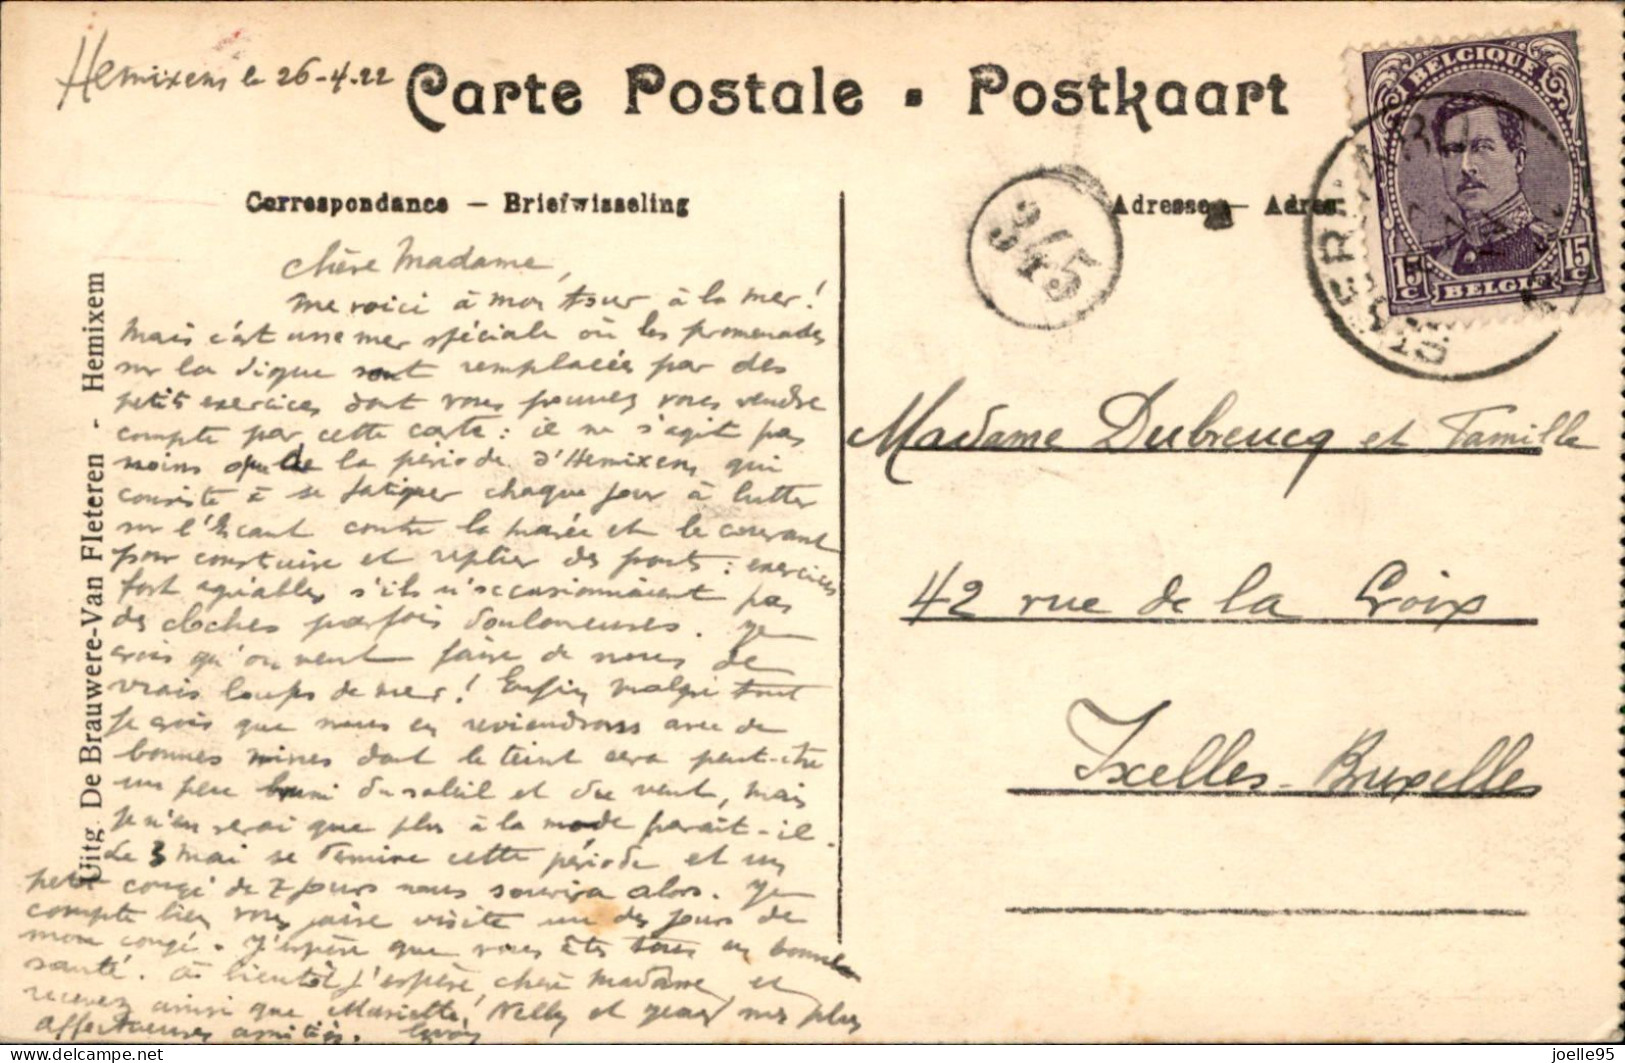 Hemixem le 26-4-22
Carte Postale - Postkaart
Correspondance - Briefwisseling
Adresse - Adres
345
BELGIQUE
15 C 15 C
BELGIË
Uitg. De Brauwere-Van Fleteren - Hemixem
Chère Madame,
me voici à mon tour à la mer!
Mais c'est une mer spéciale où les promenades
sur la digue sont remplacées par des
petits exercices dont vous pouvez vous rendre
compte par cette carte: il ne s'agit pas
moins que de la période d'Hemixem, qui
consiste à se fatiguer chaque jour à lutter
sur l'Escaut contre la marée et le courant
pour construire et replier des ponts: exercices
fort agréables s'ils n'occasionnaient pas
des cloches parfois douloureuses. Je
crois qu'on veut faire de nous de
vrais loups de mer! Enfin malgré tout
je crois que nous en reviendrons avec de
bonnes mines dont le teint sera peut-être
un peu bruni du soleil et du vent, mais
je n'en serai que plus à la mode paraît-il.
Le 3 mai se termine cette période et un
petit congé de 7 jours nous sourira alors. Je
compte bien vous faire visite un des jours de
mon congé. J'espère que vous êtes tous en bonne
santé. A bientôt j'espère, chère Madame, et
recevez ainsi que Mariette, Nelly et mes plus
affectueuses amitiés.
Madame Dubreucq et Famille
42 rue de la Croix
Ixelles-Bruxelles
joelle95